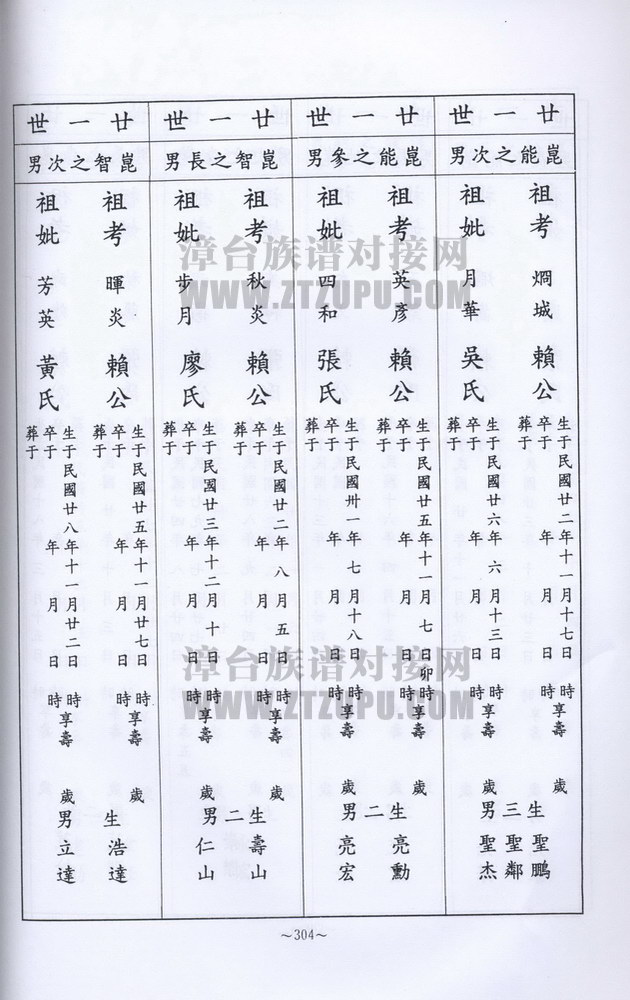 廿一世
崑能之次男
祖考 烱城 賴公
生于民國廿二年十一月十七日 時享壽 歲
卒于 年 月 日 時
葬于
祖妣 月華 吳氏
生于民國廿六年 六月十三日 時享壽 歲
卒于 年 月 日 時
葬于
生三男
聖鵬
聖鄰
聖杰
廿一世
崑能之參男
祖考 英彥 賴公
生于民國廿五年十一月 七日卯時享壽 歲
卒于 年 月 日 時
葬于
祖妣 四和 張氏
生于民國卅一年 七月十八日 時享壽 歲
卒于 年 月 日 時
葬于
生二男
亮勳
亮宏
廿一世
崑智之長男
祖考 秋炎 賴公
生于民國廿二年 八月 五日 時享壽 歲
卒于 年 月 日 時
葬于
祖妣 步月 廖氏
生于民國廿三年十二月 十日 時享壽 歲
卒于 年 月 日 時
葬于
生二男
壽山
仁山
廿一世
崑智之次男
祖考 暉炎 賴公
生于民國廿五年十一月廿七日 時享壽 歲
卒于 年 月 日 時
葬于
祖妣 芳英 黃氏
生于民國廿八年十一月廿二日 時享壽 歲
卒于 年 月 日 時
葬于
生 男
浩達
立達
~304~
漳台族谱对接网
WWW.ZTZUPU.COM
漳台族谱对接网
WWW.ZTZUPU.COM